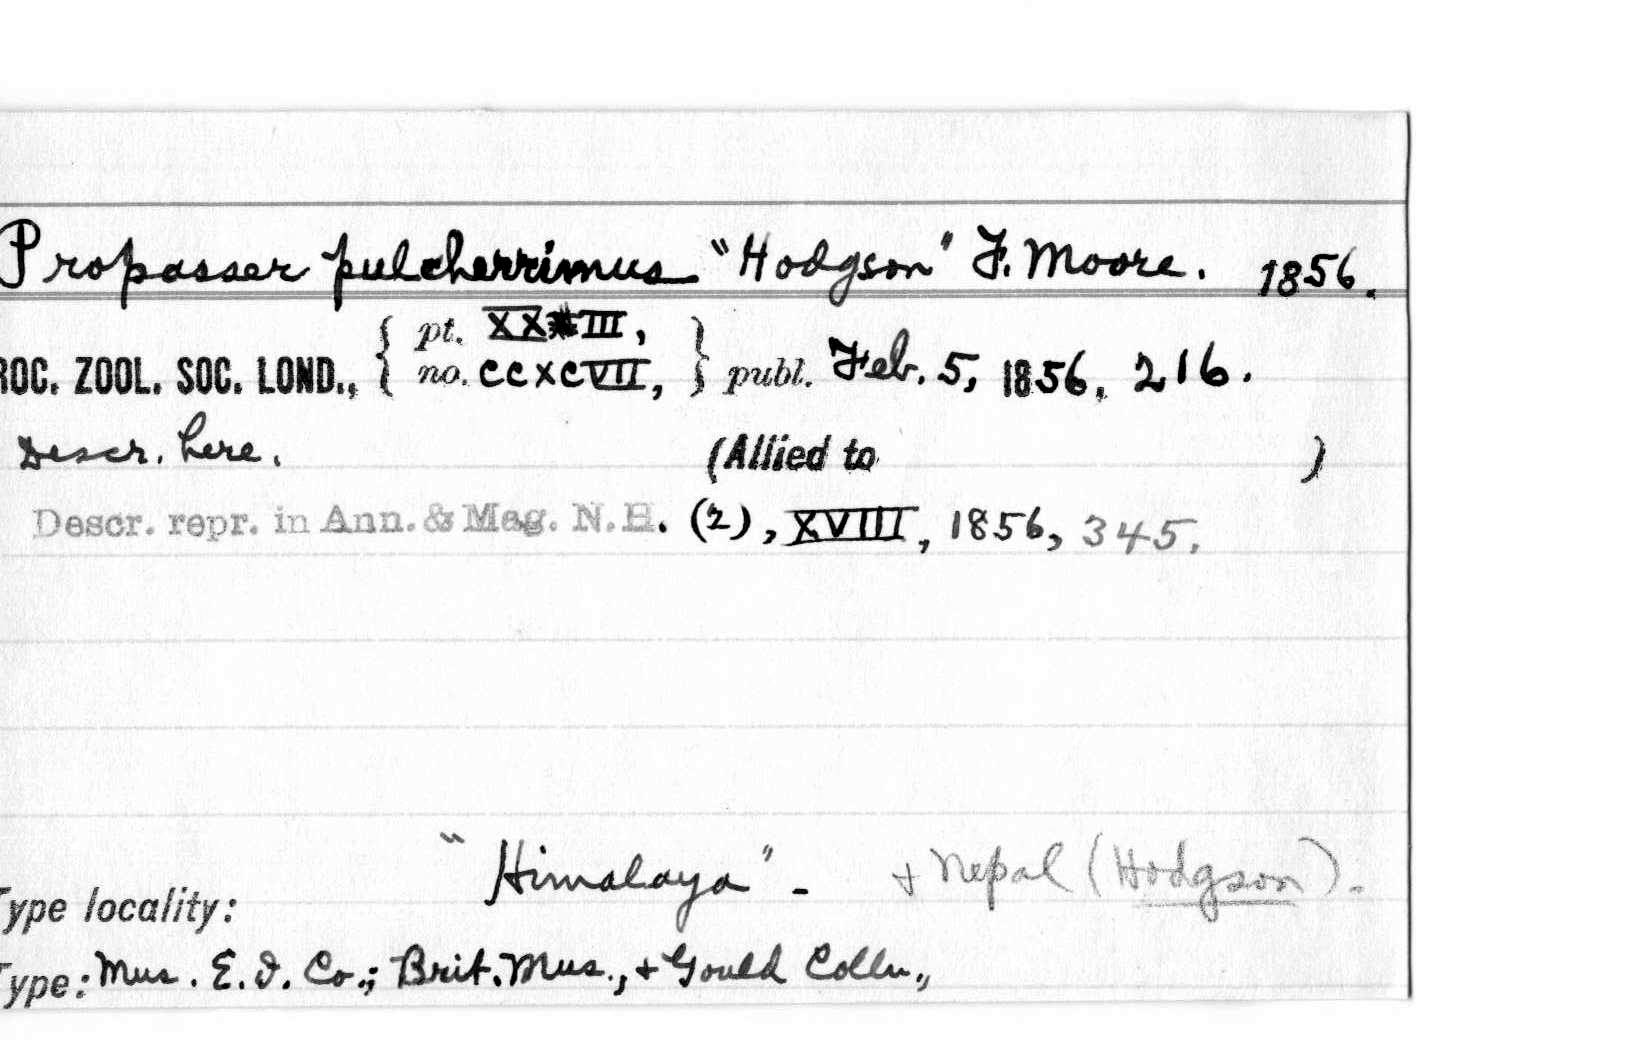 Propasser pulcherrimus "Hodgson" F. Moore. 1856.
ROC. ZOOL. SOC. LOND., { pt. XXIII, no. CCXCVII, } publ. Feb. 5, 1856, 216.
Descr. here. (Allied to )
Descr. repr. in Ann. & Mag. N.H. (2), XVIII, 1856, 345.
"Himalaya" - + Nepal (Hodgson).
Type locality:
Type: Mus. E. I. Co.; Brit. Mus., + Gould Colln.,